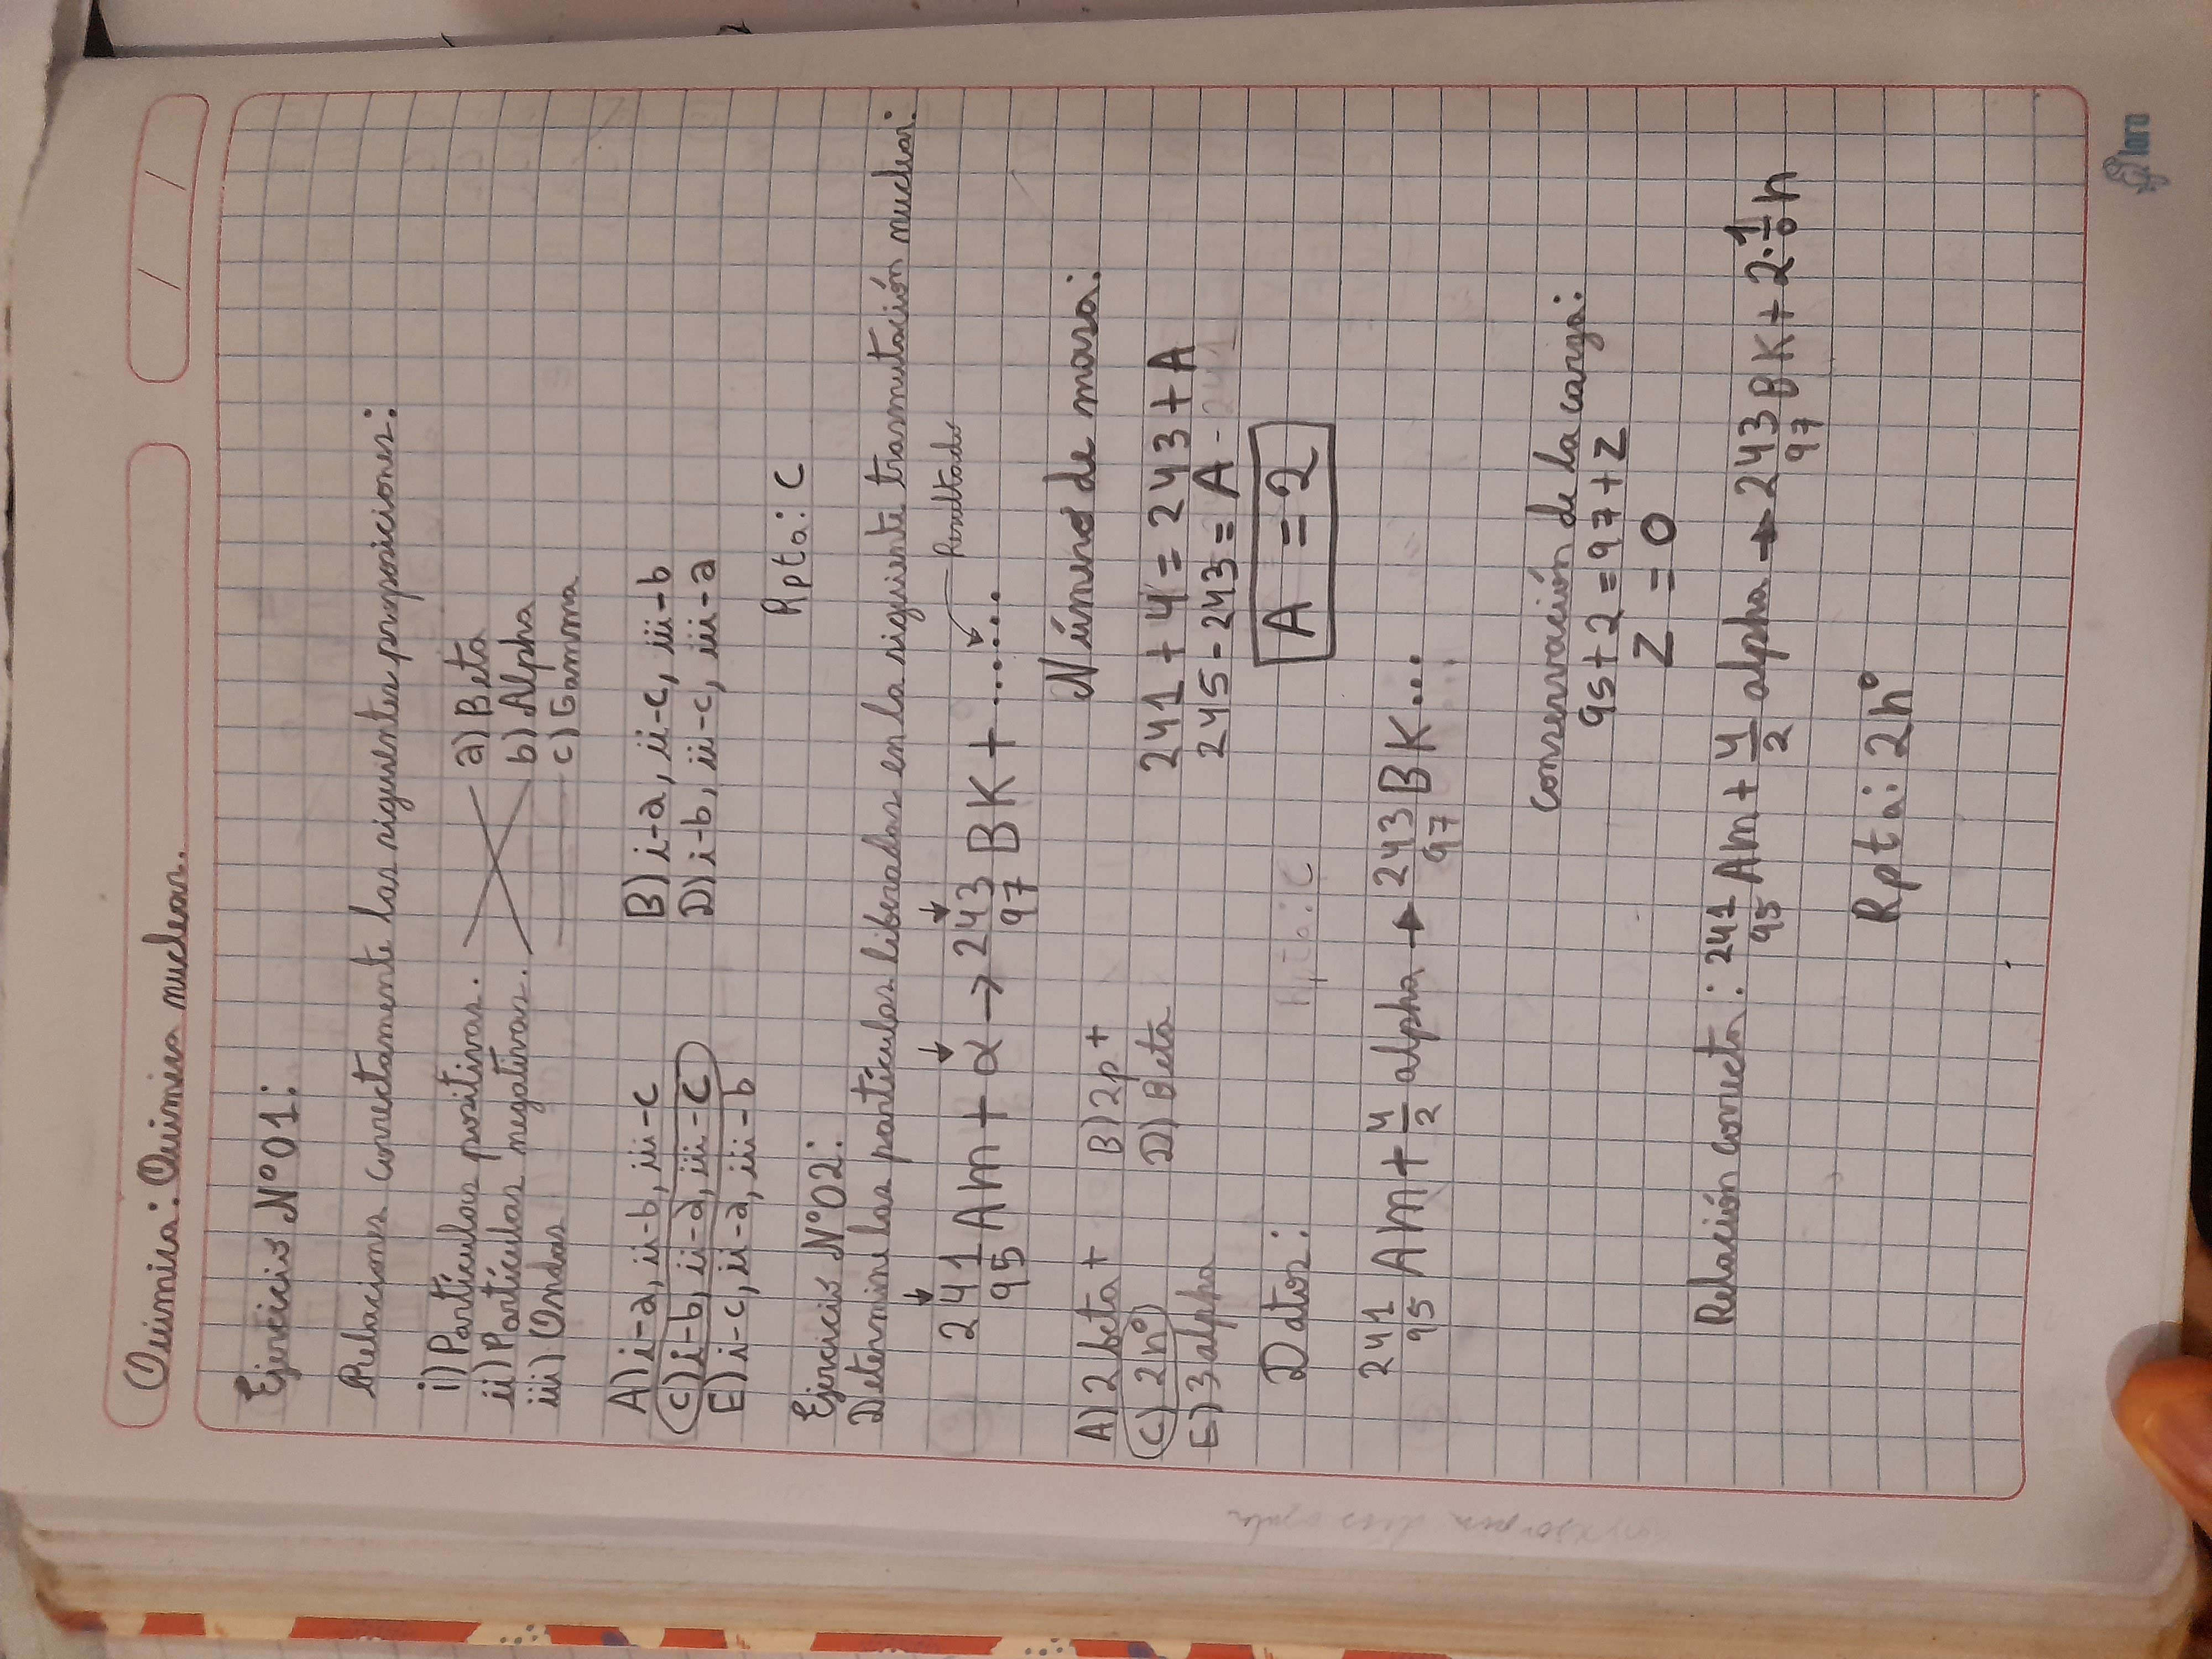 Química: Química nuclear.
/ /
Ejercicio N°01:
Relacione correctamente las siguientes proposiciones:
i) Partículas positivas. a) Beta
ii) Partículas negativas. b) Alpha
iii) Ondas c) Gamma
A) i-a, ii-b, iii-c B) i-a, ii-c, iii-b
C) i-b, ii-a, iii-c D) i-b, iii-c, iii-a
E) i-c, ii-a, iii-b
Rpta: C
Ejercicio N°02:
Determine las partículas liberadas en la siguiente trasmutación nuclear:
241/95 Am + α → 243/97 BK + ...... Resultado
A) 2 beta + B) 2p+
C) 2n° D) Beta
E) 3 alpha
Número de masa:
241 + 4 = 243 + A
245 - 243 = A
A = 2
Datos: Rpta: C
241/95 Am + 4/2 alpha → 243/97 BK...
Conservación de la carga:
95 + 2 = 97 + Z
Z = 0
Relación correcta: 241/95 Am + 4/2 alpha → 243/97 BK + 2·1/0 n
Rpta: 2n°
loro